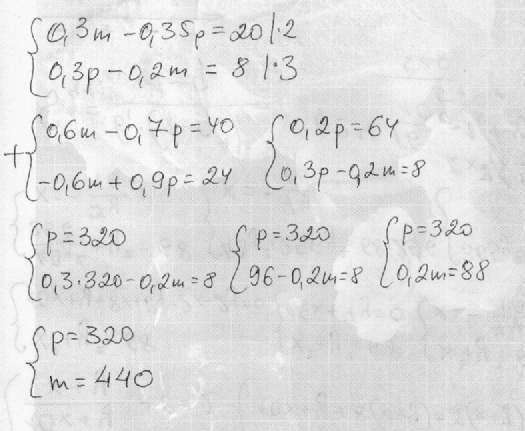 0,3m - 0,35p = 20 |·2
0,3p - 0,2m = 8 |·3
+ 0,6m - 0,7p = 40
-0,6m + 0,9p = 24
0,2p = 64
0,3p - 0,2m = 8
p = 320
0,3·320 - 0,2m = 8
p = 320
96 - 0,2m = 8
p = 320
0,2m = 88
p = 320
m = 440